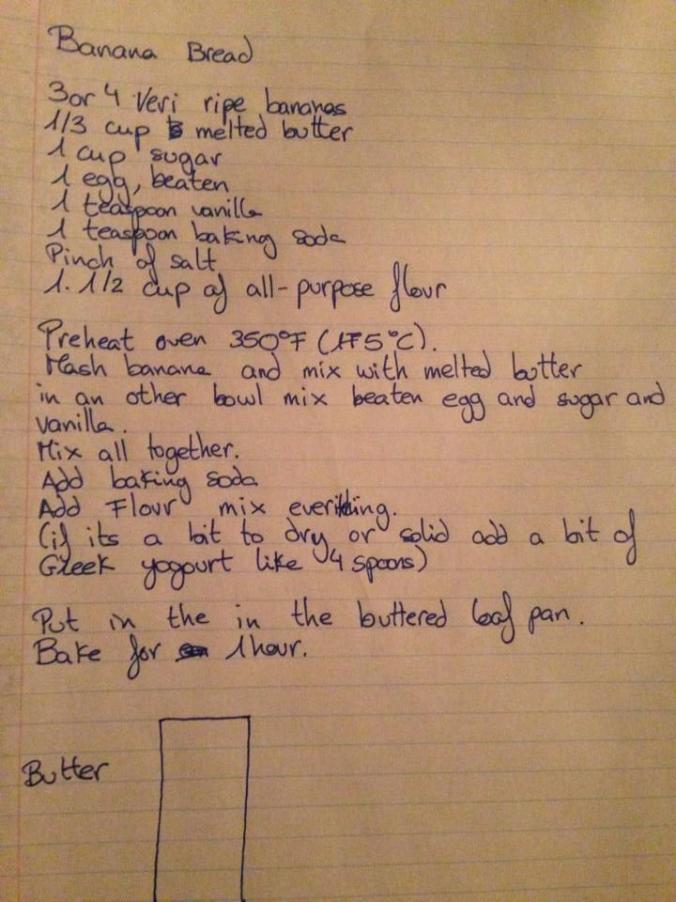 Banana Bread
3 or 4 Veri ripe bananas
1/3 cup melted butter
1 cup sugar
1 egg, beaten
1 teaspoon vanilla
1 teaspoon baking soda
Pinch of salt
1. 1/2 cup of all-purpose flour
Preheat oven 350°F (175°C).
Mash banana and mix with melted butter
in an other bowl mix beaten egg and sugar and
vanilla.
Mix all together.
Add baking soda
Add Flour mix everithing.
(if its a bit to dry or solid add a bit of
Greek yogourt like 4 spoons)
Put in the in the buttered loaf pan.
Bake for 1 hour.
Butter